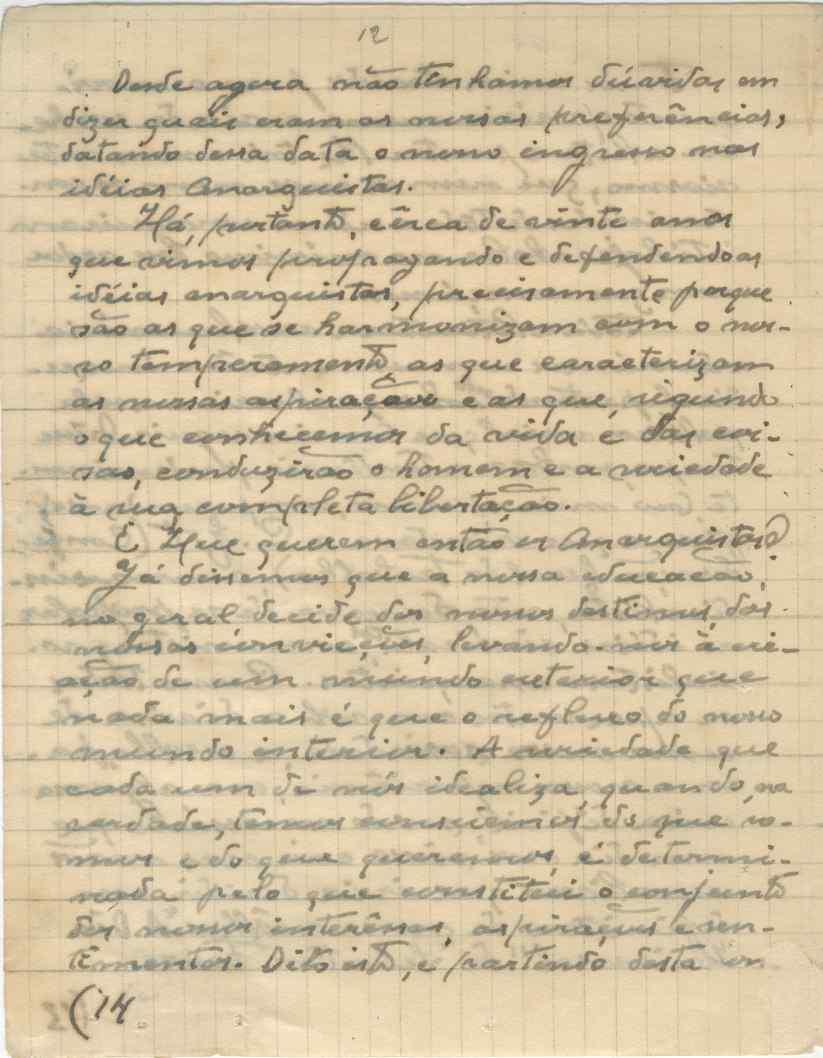 12
Desde agora não tenhamos dúvidas em
dizer quais eram as nossas preferências,
datando dessa data o nosso ingresso nas
idéias Anarquistas.
Há, portanto, cêrca de vinte anos
que vimos propagando e defendendo as
idéias anarquistas, precisamente porque
são as que se harmonizam com o nos-
so temperamento, as que caracterizam
as nossas aspirações e as que, segundo
o que conhecemos da vida e das coi-
sas, conduzirão o homem e a sociedade
à sua completa libertação.
E Que querem então os Anarquistas?
Já dissemos que a nossa educação,
no geral decide dos nossos destinos, das
nossas convicções, levando-nos à cri-
ação de um mundo exterior que
nada mais é que o reflexo do nosso
mundo interior. A sociedade que
cada um de nós idealiza, quando, na
verdade, temos consciência do que so-
mos e do que queremos, é determi-
nada pelo que constitui o conjunto
dos nossos interêsses, aspirações e sen-
timentos. Dito isto, e partindo desta
(14